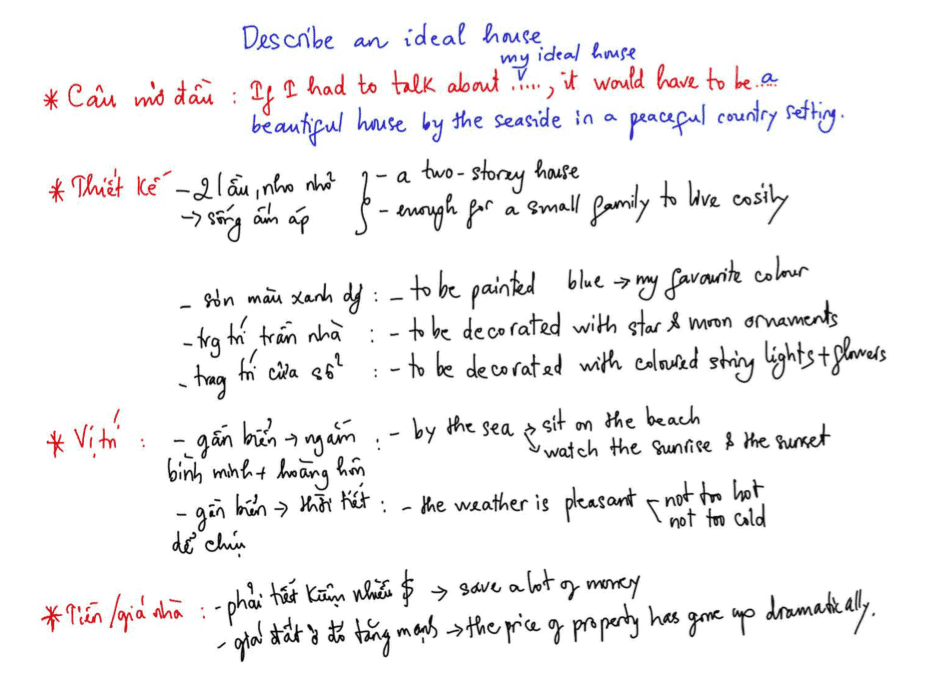 Describe an ideal house
my ideal house
* Câu mở đầu : If I had to talk about ....., it would have to be a
beautiful house by the seaside in a peaceful country setting.
* Thiết kế - 2 lầu, nho nhỏ } - a two-storey house
→ sống ấm áp - enough for a small family to live cosily
- sơn màu xanh dg : - to be painted blue → my favourite colour
- trg trí trần nhà : - to be decorated with star & moon ornaments
- trag trí cửa sổ : - to be decorated with coloured string lights + flowers
* Vị trí : - gần biển → ngắm : - by the sea → sit on the beach
bình minh + hoàng hôn → watch the sunrise & the sunset
- gần biển → thời tiết : - the weather is pleasant - not too hot
dễ chịu not too cold
* Tiền/giá nhà : - phải tiết kiệm nhiều $ → save a lot of money
- giá đất ở đó tăng mạnh → the price of property has gone up dramatically.